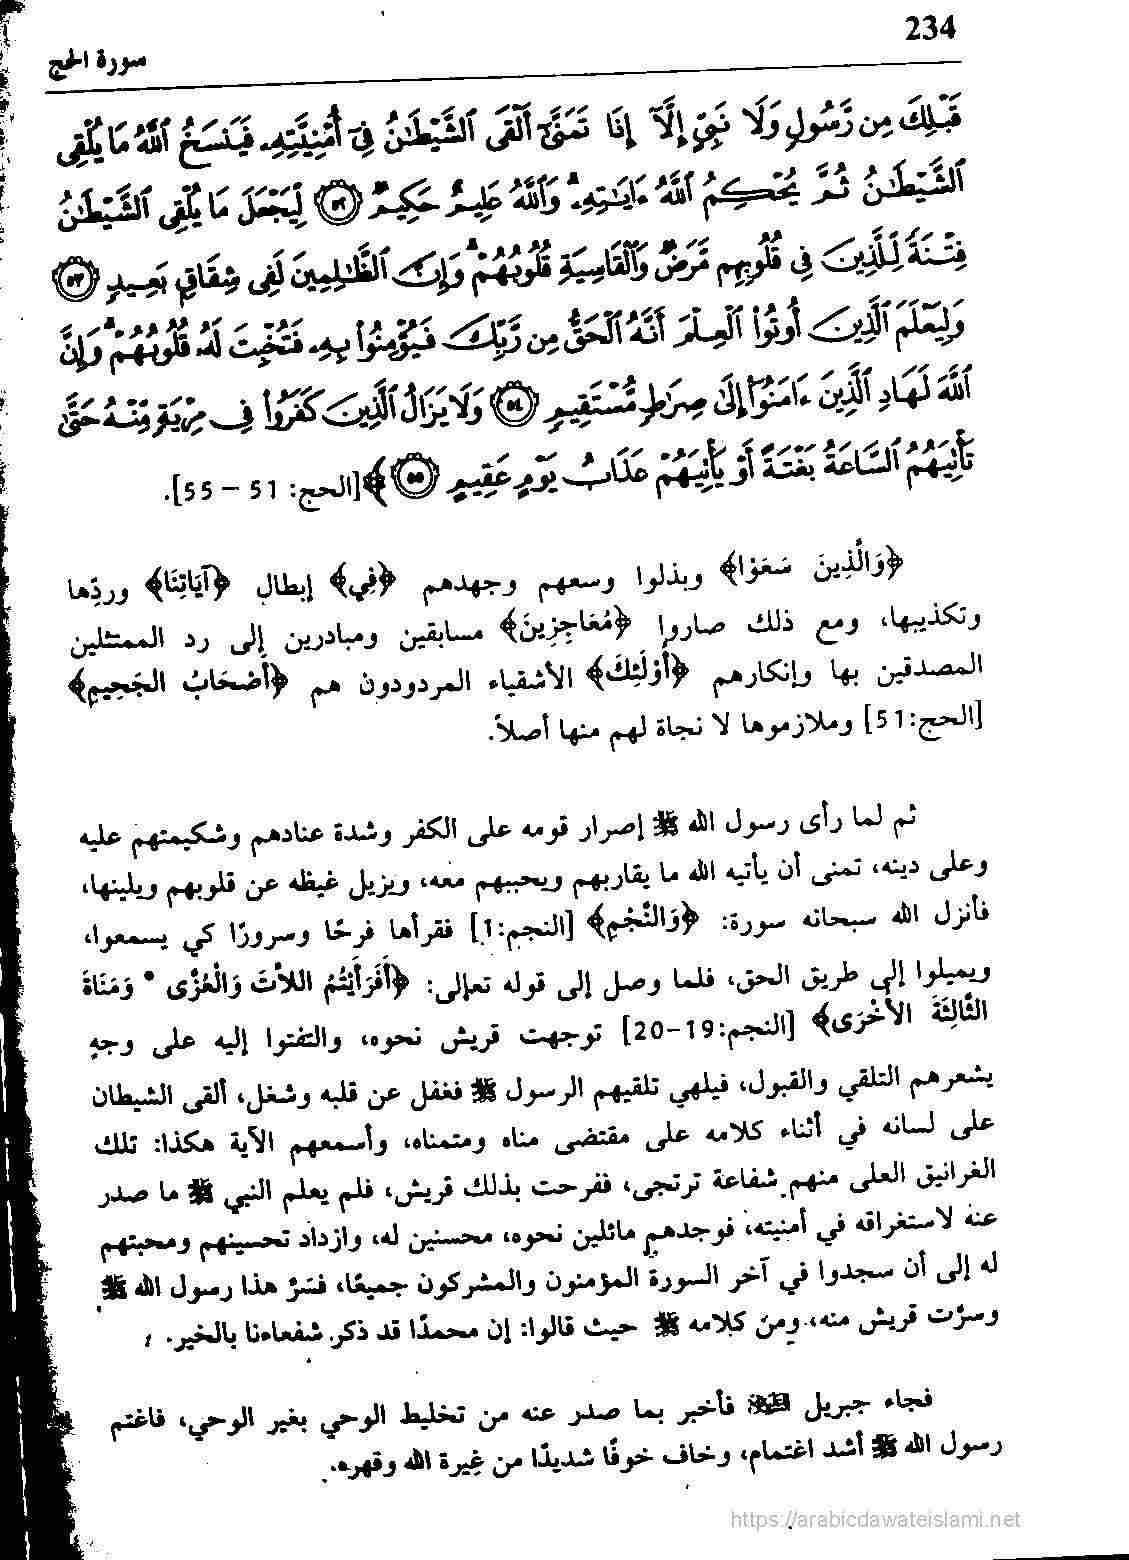 234
سورة الحج
قَبْلِكَ مِن رَّسُولٍ وَلَا نَبِيٍّ إِلَّآ إِذَا تَمَنَّىٰٓ أَلْقَى ٱلشَّيْطَـٰنُ فِىٓ أُمْنِيَّتِهِۦ فَيَنسَخُ ٱللَّهُ مَا يُلْقِى
ٱلشَّيْطَـٰنُ ثُمَّ يُحْكِمُ ٱللَّهُ ءَايَـٰتِهِۦ ۗ وَٱللَّهُ عَلِيمٌ حَكِيمٌ ﴿٥٢﴾ لِّيَجْعَلَ مَا يُلْقِى ٱلشَّيْطَـٰنُ
فِتْنَةً لِّلَّذِينَ فِى قُلُوبِهِم مَّرَضٌ وَٱلْقَاسِيَةِ قُلُوبُهُمْ ۗ وَإِنَّ ٱلظَّـٰلِمِينَ لَفِى شِقَاقٍۭ بَعِيدٍ ﴿٥٣﴾
وَلِيَعْلَمَ ٱلَّذِينَ أُوتُوا۟ ٱلْعِلْمَ أَنَّهُ ٱلْحَقُّ مِن رَّبِّكَ فَيُؤْمِنُوا۟ بِهِۦ فَتُخْبِتَ لَهُۥ قُلُوبُهُمْ ۗ وَإِنَّ
ٱللَّهَ لَهَادِ ٱلَّذِينَ ءَامَنُوٓا۟ إِلَىٰ صِرَٰطٍ مُّسْتَقِيمٍ ﴿٥٤﴾ وَلَا يَزَالُ ٱلَّذِينَ كَفَرُوا۟ فِى مِرْيَةٍ مِّنْهُ حَتَّىٰ
تَأْتِيَهُمُ ٱلسَّاعَةُ بَغْتَةً أَوْ يَأْتِيَهُمْ عَذَابُ يَوْمٍ عَقِيمٍ ﴿٥٥﴾﴾[الحج: 51 – 55].
﴿وَالَّذِينَ سَعَوْا﴾ وبذلوا وسعهم وجهدهم ﴿فِي﴾ إبطال ﴿آيَاتِنَا﴾ وردِّها
وتكذيبها، ومع ذلك صاروا ﴿مُعَاجِزِينَ﴾ مسابقين ومبادرين إلى رد الممتثلين
المصدقين بها وإنكارهم ﴿أُوْلَئِكَ﴾ الأشقياء المردودون هم ﴿أَصْحَابُ الجَحِيمِ﴾
[الحج:51] وملازموها لا نجاة لهم منها أصلاً.
ثم لما رأى رسول الله ﷺ إصرار قومه على الكفر وشدة عنادهم وشكيمتهم عليه
وعلى دينه، تمنى أن يأتيه الله ما يقاربهم ويحببهم معه، ويزيل غيظه عن قلوبهم ويلينها،
فأنزل الله سبحانه سورة: ﴿وَالنَّجْمِ﴾ [النجم:1] فقرأها فرحًا وسرورًا كي يسمعوا،
ويميلوا إلى طريق الحق، فلما وصل إلى قوله تعالى: ﴿أَفَرَأَيْتُمُ اللاَّتَ وَالْعُزَّى * وَمَنَاةَ
الثَّالِثَةَ الأُخْرَى﴾ [النجم:19-20] توجهت قريش نحوه، والتفتوا إليه على وجهٍ
يشعرهم التلقي والقبول، فيلهي تلقيهم الرسول ﷺ فغفل عن قلبه وشغل، ألقى الشيطان
على لسانه في أثناء كلامه على مقتضى مناه ومتمناه، وأسمعهم الآية هكذا: تلك
الغرانيق العلى منهم شفاعة ترتجى، ففرحت بذلك قريش، فلم يعلم النبي ﷺ ما صدر
عنه لاستغراقه في أمنيته، فوجدهم مائلين نحوه، محسنين له، وازداد تحسينهم ومحبتهم
له إلى أن سجدوا في آخر السورة المؤمنون والمشركون جميعًا، فسُرَّ هذا رسول الله ﷺ
وسرَّت قريش منه، ومن كلامه ﷺ حيث قالوا: إن محمدًا قد ذكر شفعاءنا بالخير.
فجاء جبريل عليه السلام فأخبر بما صدر عنه من تخليط الوحي بغير الوحي، فاغتم
رسول الله ﷺ أشد اغتمام، وخاف خوفًا شديدًا من غِيرة الله وقهره.
https://arabicdawateislami.net